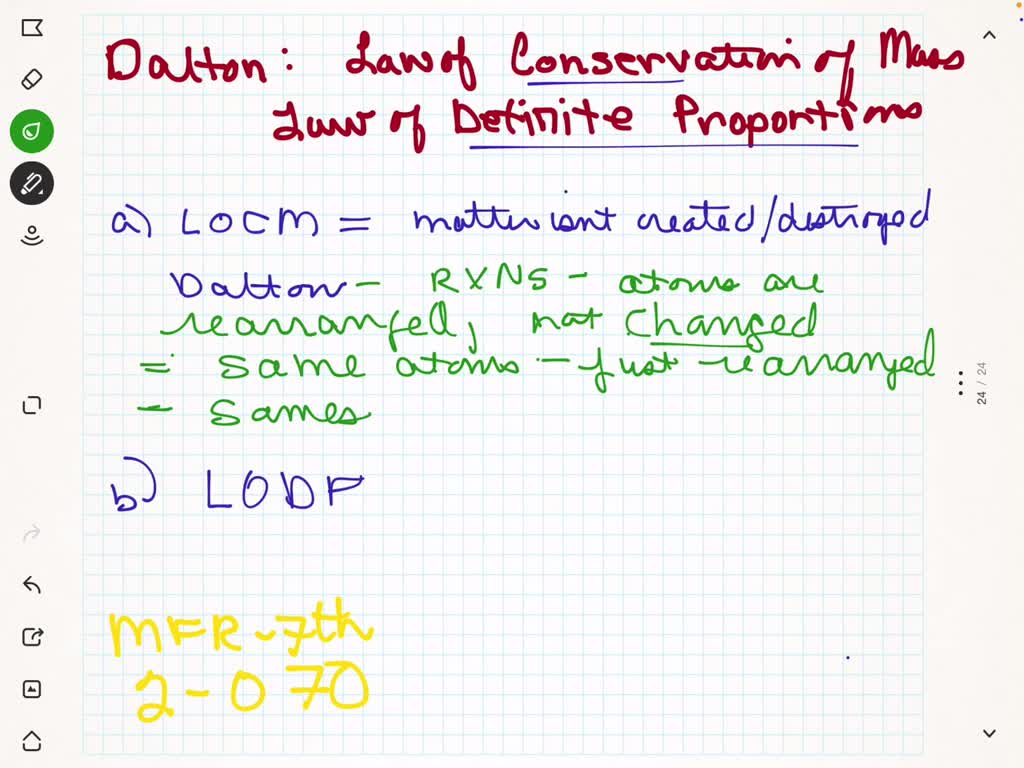 Dalton: Law of Conservation of Mass
Law of Definite Proportions
a) LOCM = matter isnt created/destroyed
Dalton - RXNS - atoms are
rearranged, not Changed
= Same atoms - just rearranged
- Sames
b) LODP
MFR-7th
2-070
24 / 24